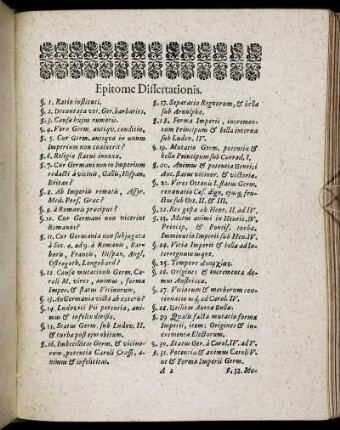 Epitome Dissertationis.
§. 1. Ratio instituti.
§. 2. Decantata vet. Ger. barbaries.
§. 3. Causa hujus rumoris.
§. 4. Vera Germ. antiqu. conditio.
§. 5. Cur Germ. antiqua in unum
Imperium non coaluerit?
§. 6. Religio statui innexa.
§. 7. Cur Germani non in Imperium
redacti à vicinis, Gallis, Hispan,
Britan?
§. 8. Ab Imperiis remotis, Assyr.
Med. Pers. Græc?
§. 9. à Romanis præcipuè?
§. 10. Cur Germani non vicerint
Romanos?
§. 11. Cur Germania non subjugata
à Sec. a. adq. à Romanis, Bar-
baris, Francis, Hispan, Angl,
Ostrogoth, Longobard?
§. 12. Causæ mutationis Germ. Ca-
roli M. vires, animus, forma
Imper. & status Vicinorum.
§. 13. An Germania victa ab exteris?
§. 14. Ludovici Pii potentia, ani-
mus & infelix divisio.
§. 15. Status Germ. sub Ludov. II.
& turbæ post ejus obitum.
§. 16. Imbecillitas Germ. & vicino-
rum, potentia Caroli Crassi, a-
nimus & infelicitas.
§. 17. Separatio Regnorum, & bella
sub Arnolpho.
§. 18. Forma Imperii, incremen-
tum Principum & bella interna
sub Ludov. IV.
§. 19. Mutatio Germ. potentiæ &
bella Principum sub Conrad. I.
§. 20. Animus & potentia Henrici
Auc. status vicinor. & victoria.
§. 21. Vires Ottonis I. status Germ.
renovatio Cæs. dign. ejusq; fru-
ctus sub Ott. II. & III.
§. 22. Res gesta ab Henr. II. ad IV.
§. 23. Motus animi in Henric. IV.
Princip, & Pontif. turbæ.
Imminutio Imperii sub Hen. IV.
§. 24. Vitia Imperii & bella ad In-
terregnum usque.
§. 25. Tempore ἀναρχίας.
§. 26. Origines & incrementa do-
mus Austriacæ.
§. 27. Vitiorum & morborum con-
tinuatio usq; ad Carol. IV.
§. 28. Utilitas Aureæ Bullæ.
§. 29. Qualis facta mutatio formæ
Imperii, item; Origines & in-
crementa Electorum.
§. 30. Status Ger. à Carol. IV. ad V.
§. 31. Potentia & animus Caroli V.
ut & Forma Imperii Germ.
d 2 §. 32. Mo-